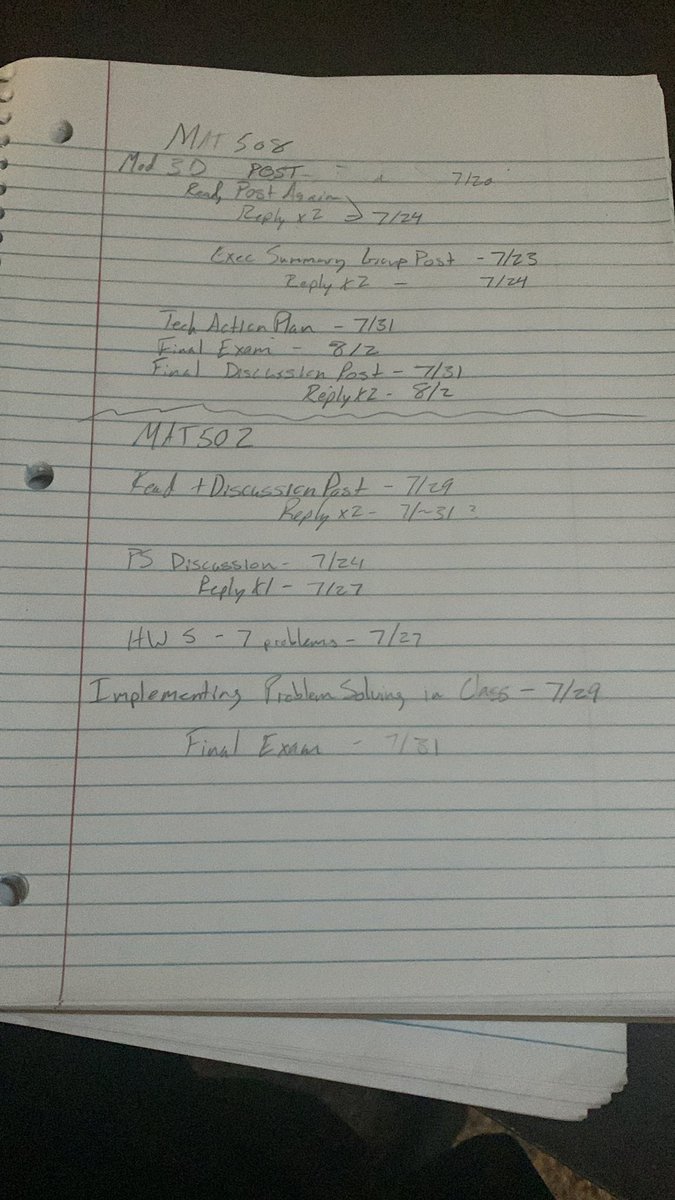 MAT 508
Mod 3D POST - 7/20
Read, Post Again
Reply x2 7/24
Exec Summary Group Post - 7/23
Reply x2 - 7/24
Tech Action Plan - 7/31
Final Exam - 8/2
Final Discussion Post - 7/31
Reply x2 - 8/2
MAT 502
Read + Discussion Post - 7/29
Reply x2 - 7/~31 ?
PS Discussion - 7/24
Reply x1 - 7/27
HW 5 - 7 problems - 7/27
Implementing Problem Solving in Class - 7/29
Final Exam - 7/31